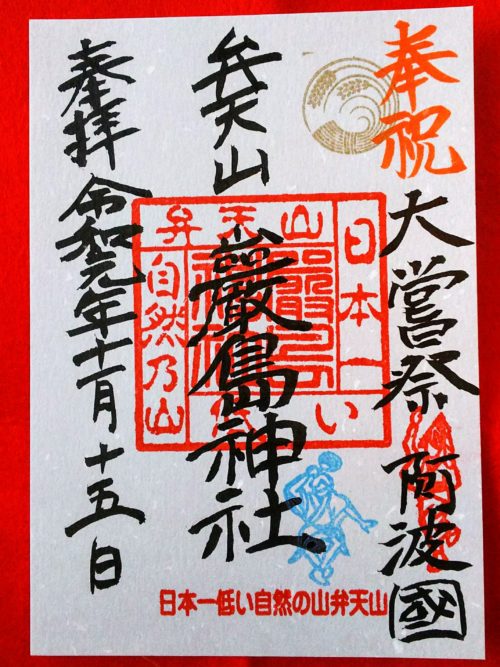 奉祝
大嘗祭 阿波國
弁天山
巌島神社
奉拝 令和元年十一月十五日
日本一
い
弁天山
自然乃山
日本一低い自然の山弁天山